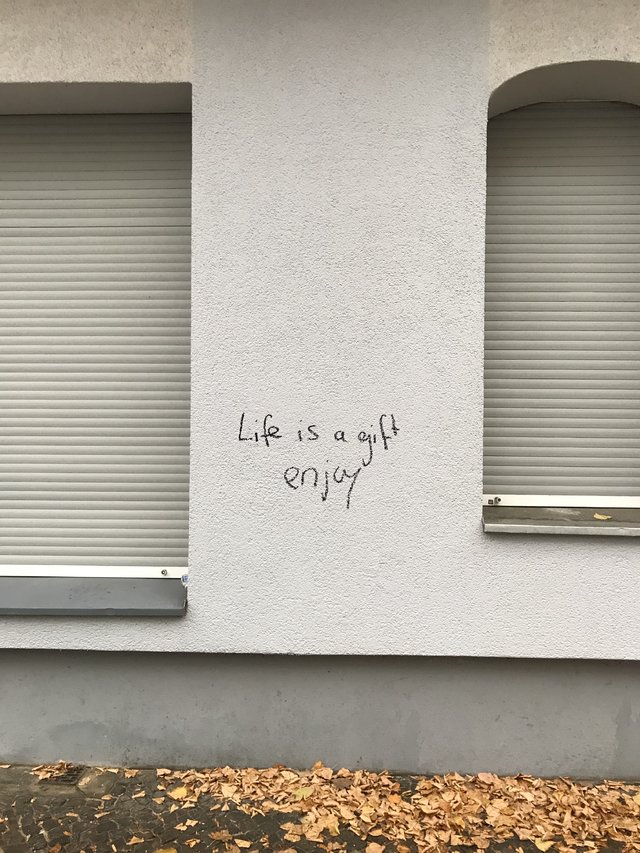 Life is a gift
enjoy